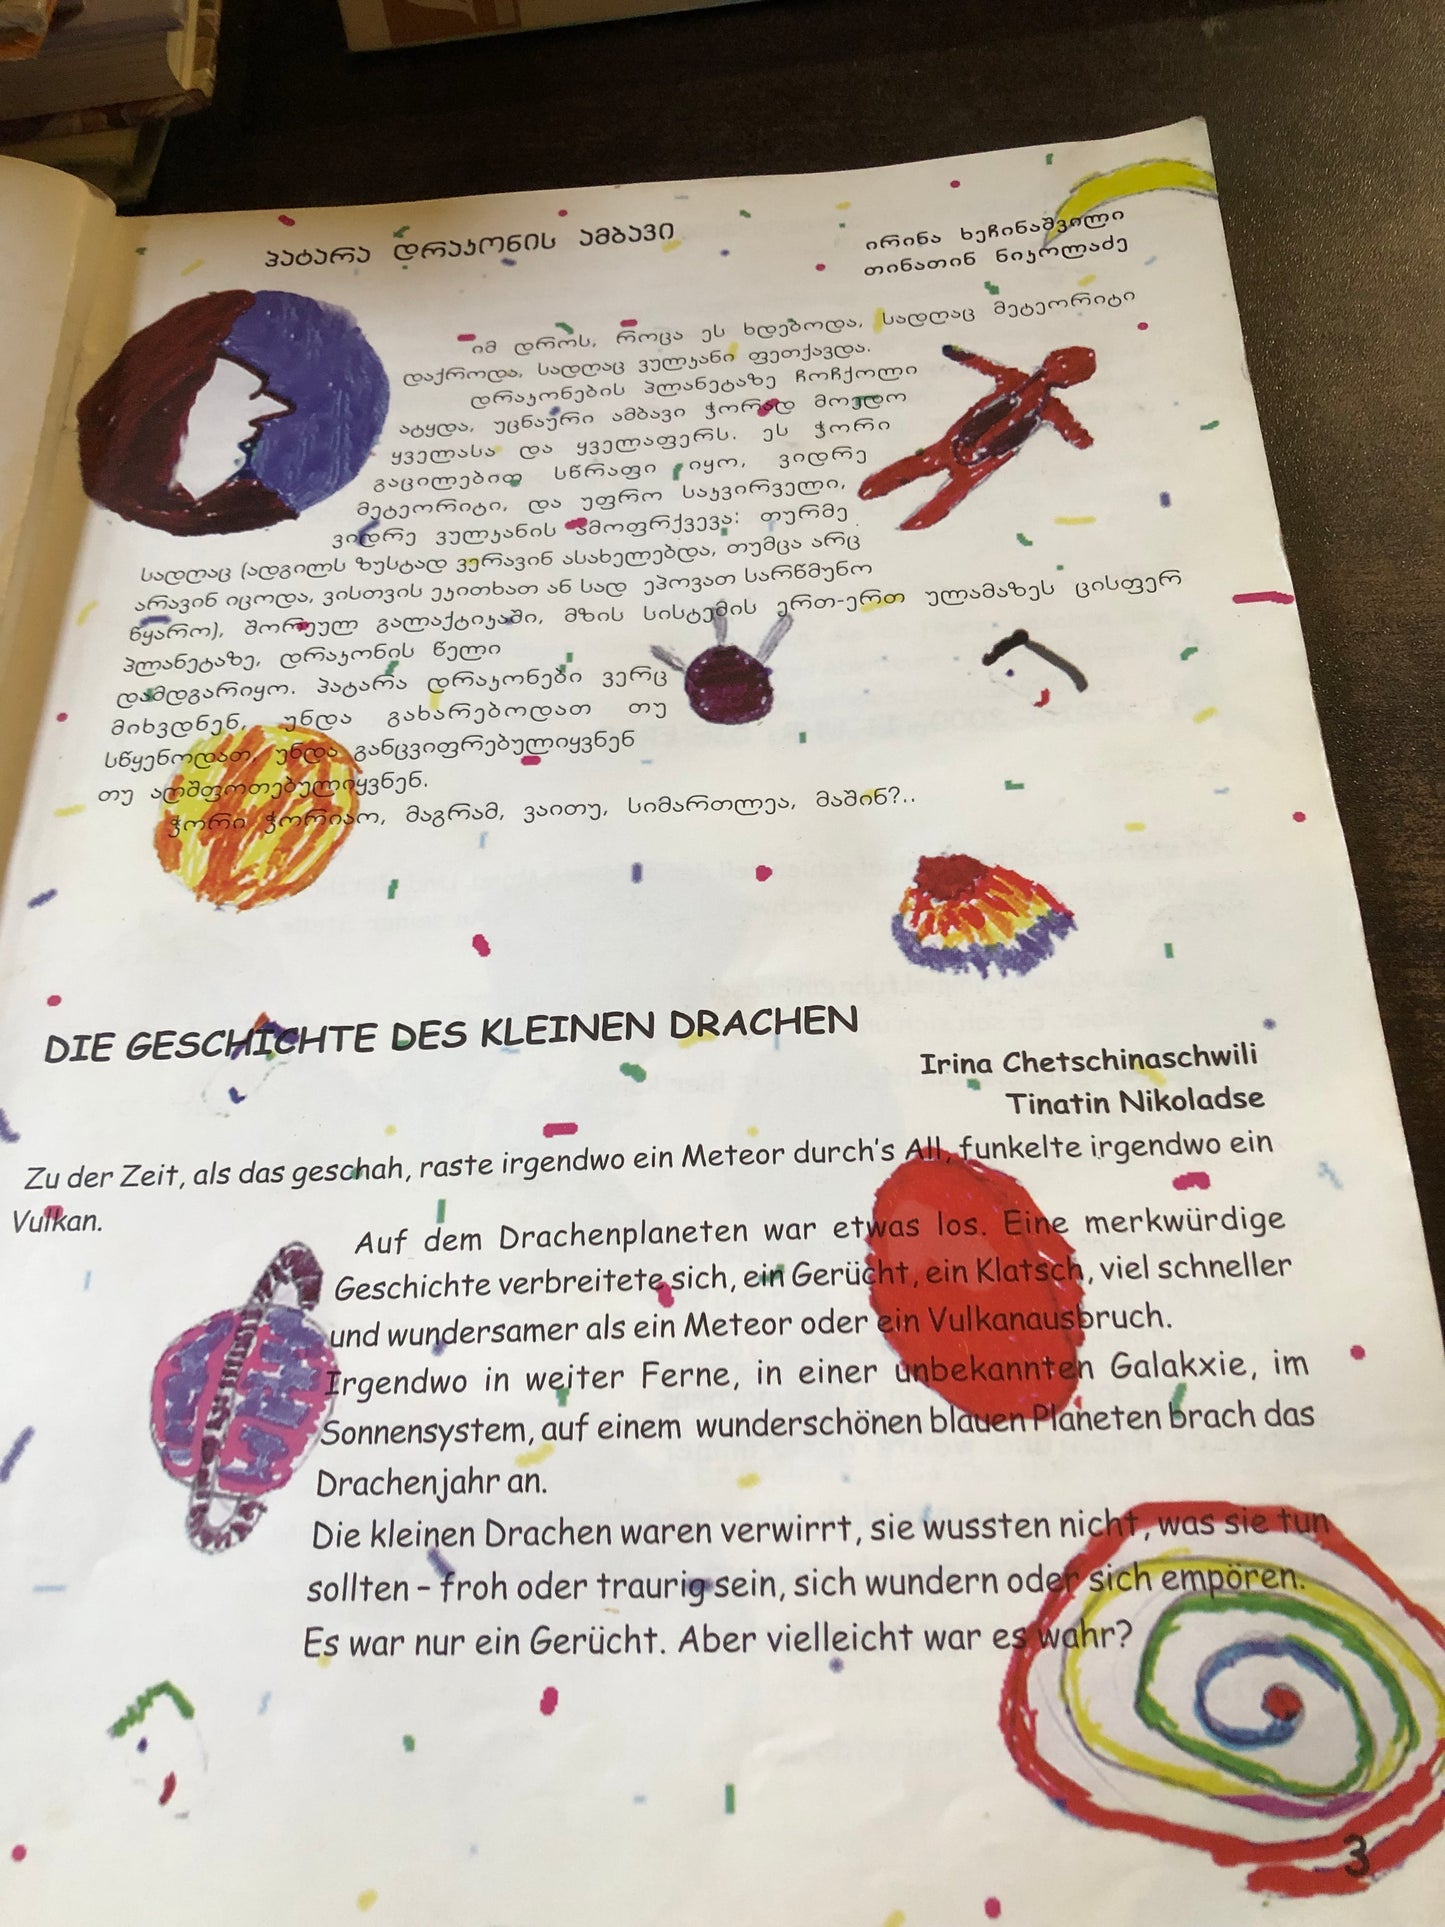 პატარა დრაკონის ამბავი
ირინა ხეჩინაშვილი
თინათინ ნიკოლაძე
იმ დროს, როცა ეს ხდებოდა, სადღაც მეტეორიტი
დაქროდა, სადღაც ვულკანი ფეთქავდა.
დრაკონების პლანეტაზე ჩოჩქოლი
ატყდა, უცნაური ამბავი ჭორად მოედო
ყველასა და ყველაფერს. ეს ჭორი
გაცილებით სწრაფი იყო, ვიდრე
მეტეორიტი, და უფრო საკვირველი,
ვიდრე ვულკანის ამოფრქვევა: თურმე
სადღაც (ადგილს ზუსტად ვერავინ ასახელებდა, თუმცა არც
არავინ იცოდა, ვისთვის ეკითხათ ან სად ეპოვათ სარწმუნო
წყარო), შორეულ გალაქტიკაში, მზის სისტემის ერთ-ერთ ულამაზეს ცისფერ
პლანეტაზე, დრაკონის წელი
დამდგარიყო. პატარა დრაკონები ვერც
მიხვდნენ, უნდა გახარებოდათ თუ
სწყენოდათ, უნდა განცვიფრებულიყვნენ
თუ აღშფოთებულიყვნენ.
ჭორი ჭორიაო, მაგრამ, ვაითუ, სიმართლეა, მაშინ?..
DIE GESCHICHTE DES KLEINEN DRACHEN
Irina Chetschinaschwili
Tinatin Nikoladse
Zu der Zeit, als das geschah, raste irgendwo ein Meteor durch's All, funkelte irgendwo ein
Vulkan.
Auf dem Drachenplaneten war etwas los. Eine merkwürdige
Geschichte verbreitete sich, ein Gerücht, ein Klatsch, viel schneller
und wundersamer als ein Meteor oder ein Vulkanausbruch.
Irgendwo in weiter Ferne, in einer unbekannten Galakxie, im
Sonnensystem, auf einem wunderschönen blauen Planeten brach das
Drachenjahr an.
Die kleinen Drachen waren verwirrt, sie wussten nicht, was sie tun
sollten – froh oder traurig sein, sich wundern oder sich empören.
Es war nur ein Gerücht. Aber vielleicht war es wahr?
3